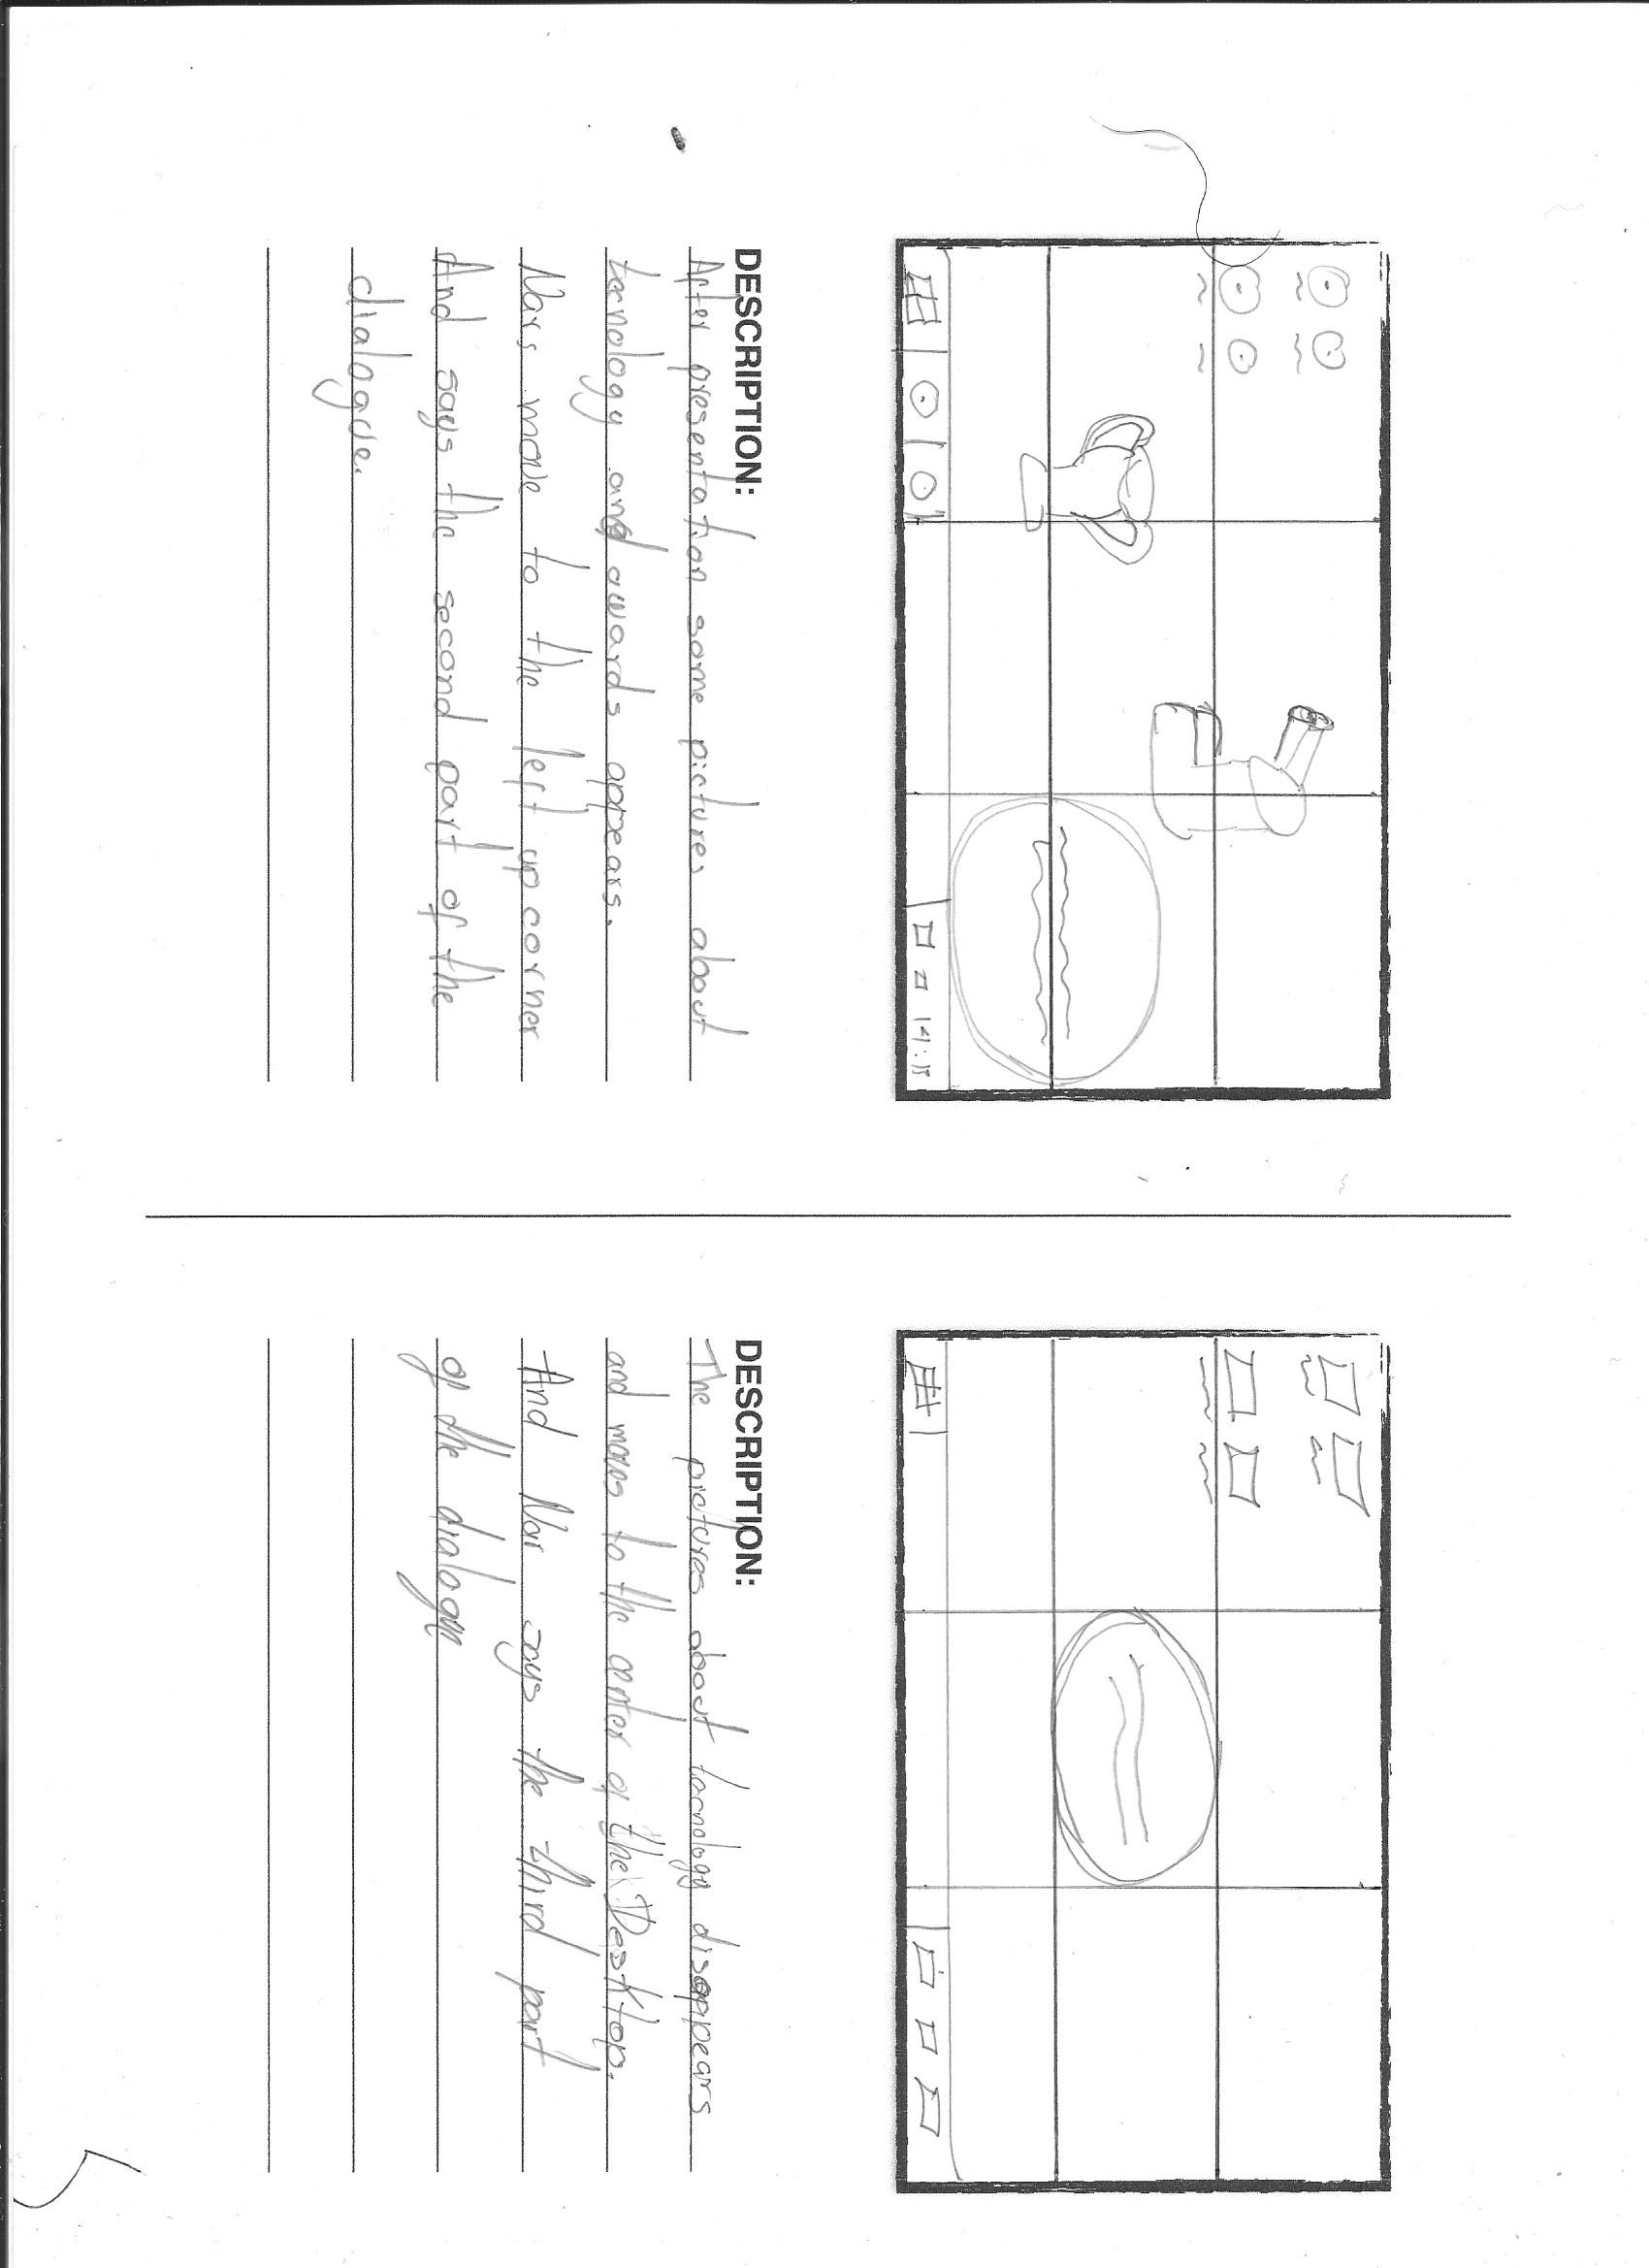 14:15
DESCRIPTION:
After presentation some pictures about
tecnology and awards appears.
Nars move to the left up corner
And says the second part of the
dialogue.
DESCRIPTION:
The pictures about tecnology disappears
and moves to the center of the Desktop.
And Nar says the third part
of the dialogue